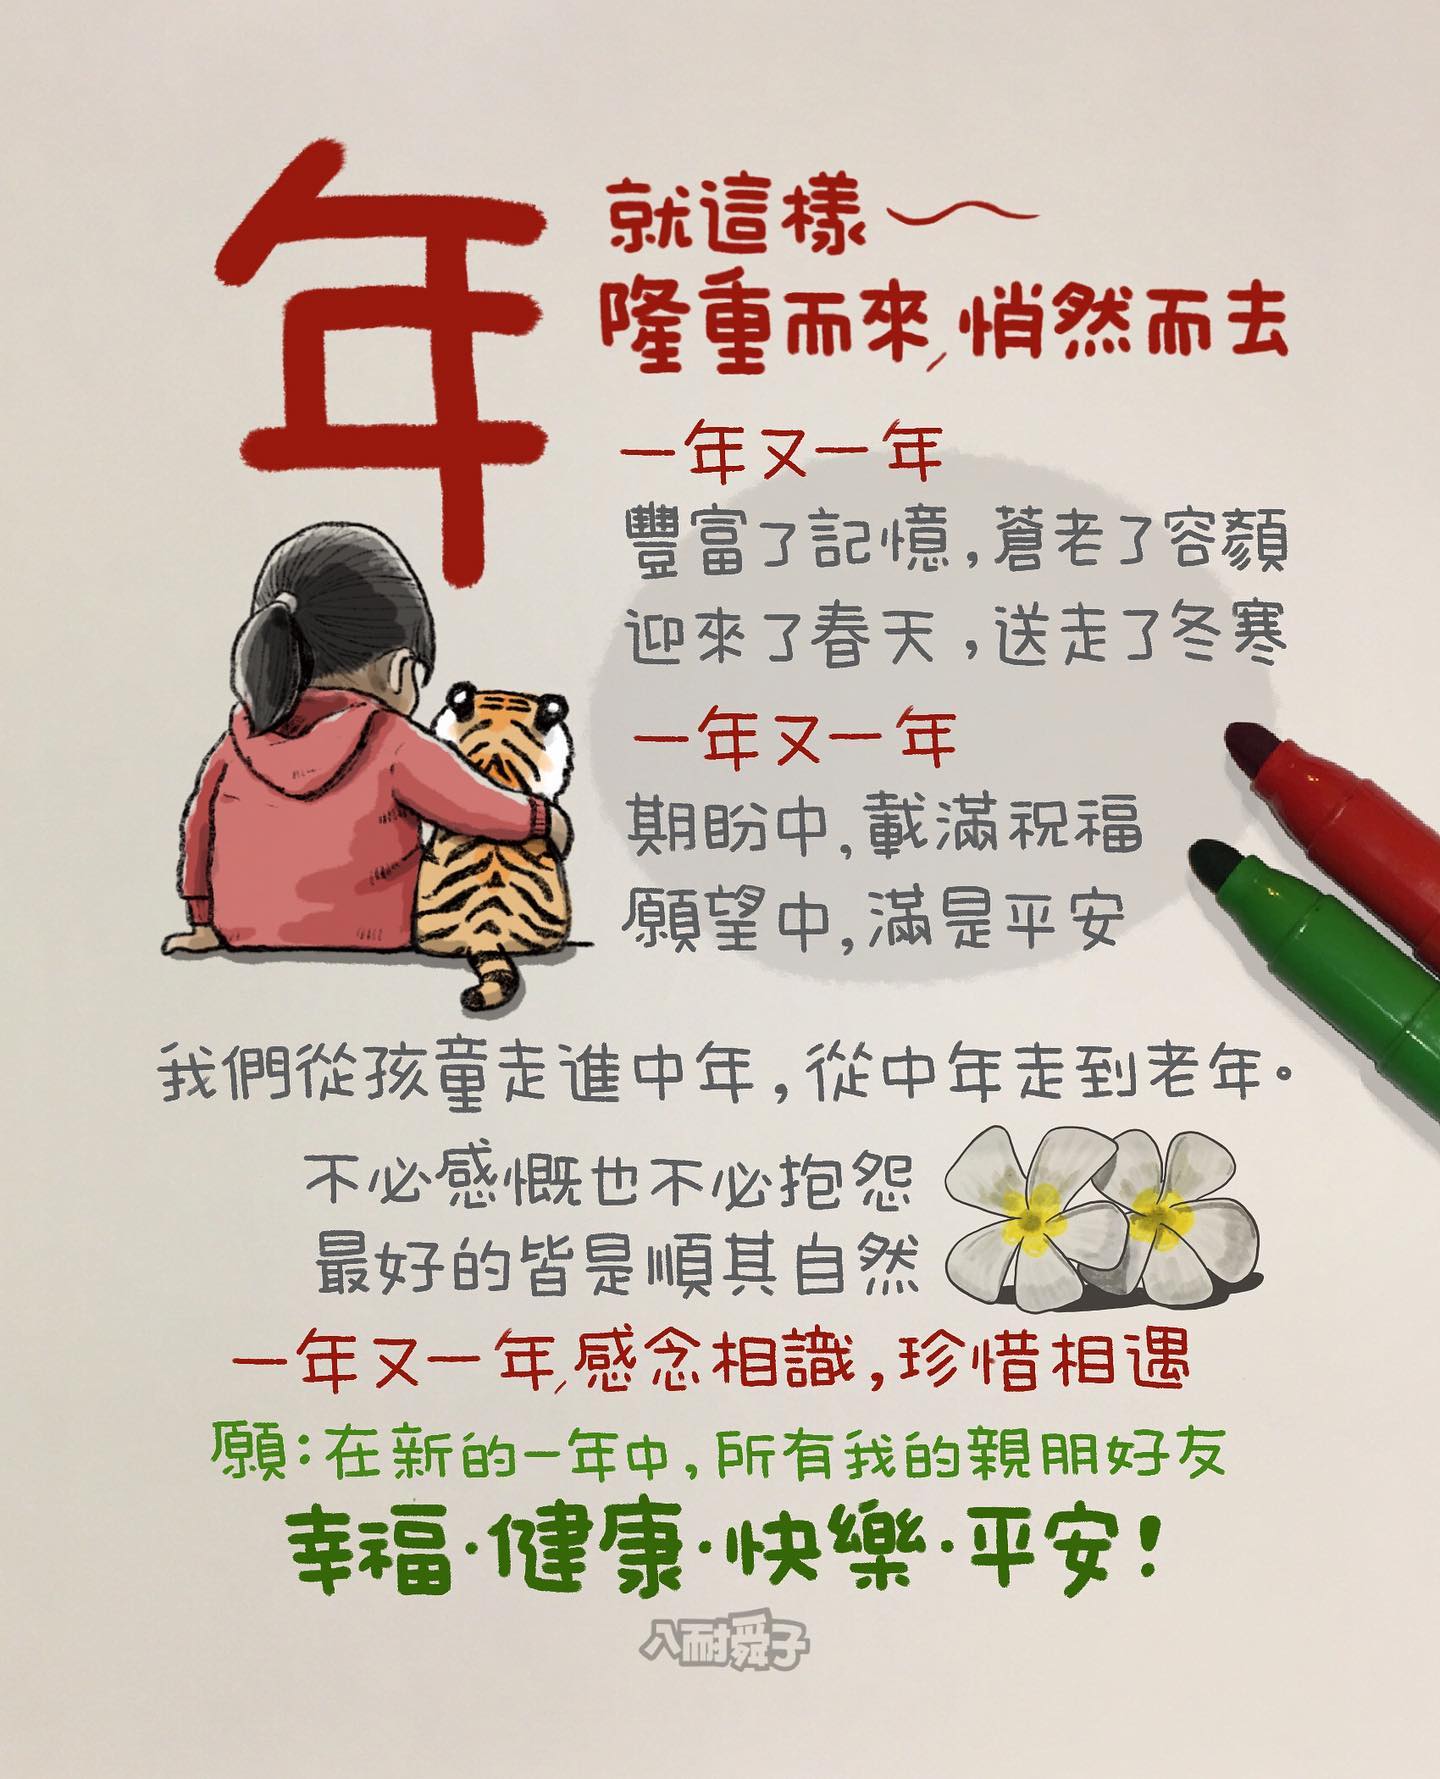 年
就這樣～
隆重而來,悄然而去
一年又一年
豐富了記憶,蒼老了容顏
迎來了春天,送走了冬寒
一年又一年
期盼中,載滿祝福
願望中,滿是平安
我們從孩童走進中年,從中年走到老年。
不必感慨也不必抱怨
最好的皆是順其自然
一年又一年,感念相識,珍惜相遇
願:在新的一年中,所有我的親朋好友
幸福·健康·快樂·平安!
八耐舜子